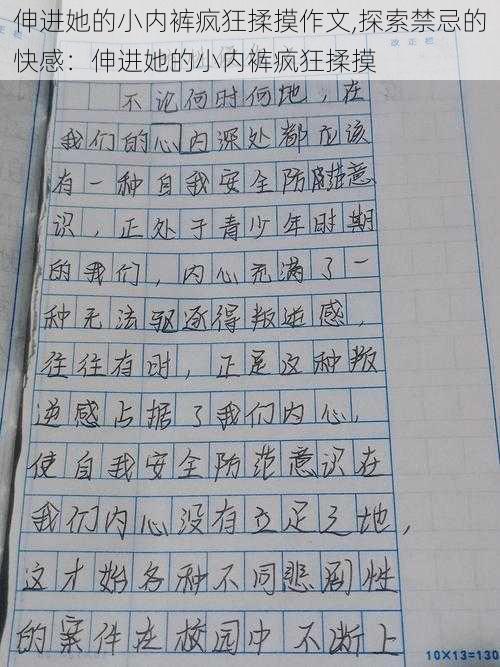 伸进她的小内裤疯狂揉摸作文,探索禁忌的
快感：伸进她的小内裤疯狂揉摸
正栏
不论何时何地，在
我们的心内深处都应该
有一种自我安全防范意
识，正处于青少年时期
的我们，内心充满了一
种无法驱逐得叛逆感，
往往有时，正是这种叛
逆感占据了我们内心，
使自我安全防范意识在
我们内心没有立足之地，
这才始各种不同悲剧性
的案件在校园中不断上
10×13=130